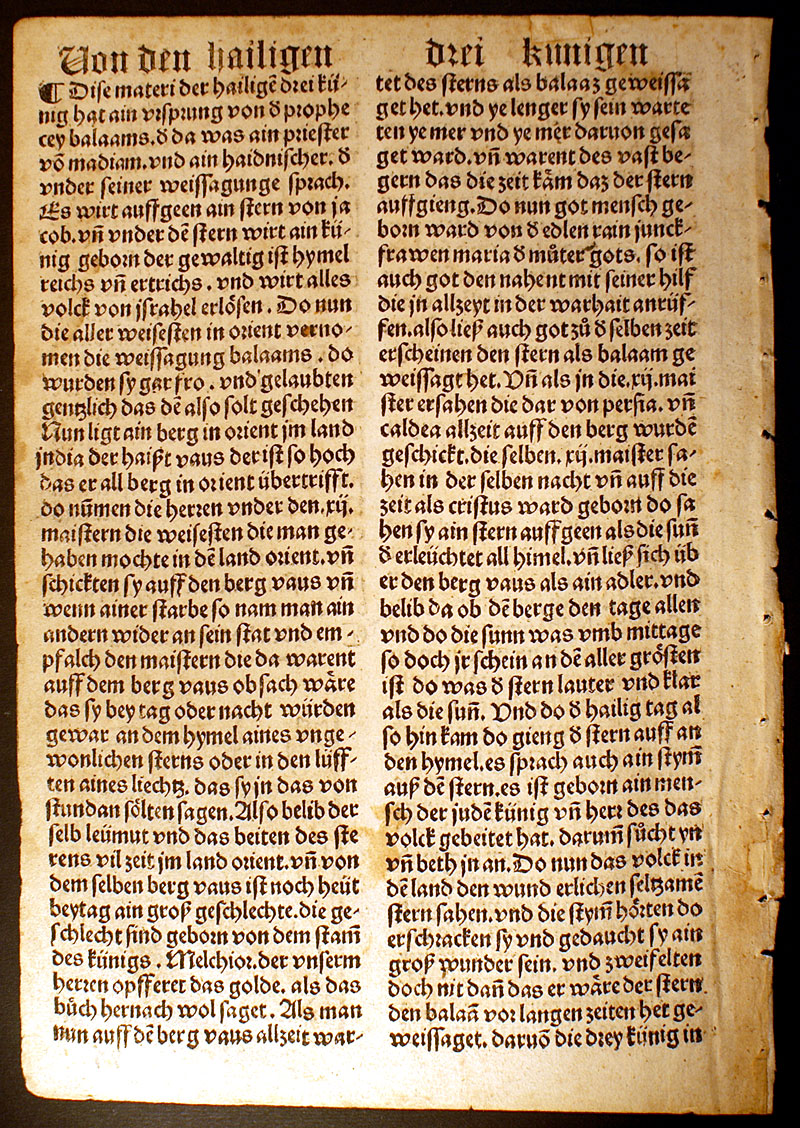 Von den hailigen drei kunigen
¶ Dise materi der hailigē drei kü⸗
nig hat ain vrsprung von d̕ prophe
cey balaams.d̕ da was ain priester
vō madian.vnd ain haidnischer. d̕
vnder seiner weissagunge sprach.
Es wirt auffgeen ain stern von ja
cob.vn̄ vnder dē stern wirt ain kü⸗
nig geborn der gewaltig ist hymel
reichs vn̄ ertrichs. vnd wirt alles
volck von jsrahel erlösen. Do nun
die aller weisesten in orient verno⸗
men die weissagung balaams. do
wurden sy gar fro. vnd gelaubten
gentzlich das dē also solt geschehen
Nun ligt ain berg in orient jm land
jndia der haißt vaus der ist so hoch
das er all berg in orient übertrifft.
do nūmen die herren vnder den.xij.
maistern die weisesten die man ge⸗
haben mochte in dē land orient.vn̄
schickten sy auff den berg vaus vn̄
wenn ainer starbe so nam man ain
andern wider an sein stat vnd em⸗
pfalch den maistern die da warent
auff dem berg vaus ob sach wåre
das sy bey tag oder nacht würden
gewar an dem hymel aines vnge⸗
wonlichen sterns oder in den lüff⸗
ten aines liechtz. das sy jn das von
stundan sölten sagen.Also belib der
selb leümut vnd das beiten des ste
rens vil zeit jm land orient.vn̄ von
dem selben berg vaus ist noch heüt
beytag ain groß geschlechte.die ge⸗
schlecht sind geborn von dem stam̄
des künigs. Melchior.der vnserm
herren opfferet das golde. als das
bůch hernach wol saget. Als man
nun auff dē berg vaus allzeit war⸗
tet des sterns als balaaz geweissa
get het.vnd ye lenger sy sein warte
ten ye mer vnd ye mer daruon gesa
get ward.vn̄ warent des vast be⸗
gern das die zeit kåm daz der stern
auffgieng.Do nun got mensch ge⸗
born ward von d̕ edlen rain junck⸗
frawen maria d̕ můter gots. so ist
auch got den nahent mit seiner hilf
die jn allzeyt in der warhait anrüf⸗
fen.also ließ auch got zů d̕ selben zeit
erscheinen den stern als balaam ge
weissagt het. Vn̄ als jn die.xij.mai
ster ersahen die dar von persia. vn̄
caldea allzeit auff den berg wurdē
geschickt.die selben.xij.maister sa⸗
hen in der selben nacht vn̄ auff die
zeit als cristus ward geborn do sa
hen sy ain stern auffgeen als die sun̄
d̕ erleüchtet all himel.vn̄ ließ sich üb
er den berg vaus als ain adler.vnd
belib da ob dē berge den tage allen
vnd do die sunn was vmb mittage
so doch jr schein an dē aller grösten
ist do was d̕ stern lauter vnd klar
als die sun̄. Vnd do d̕ hailig tag al
so hin kam do gieng d̕ stern auff an
den hymel.es sprach auch ain stym̄
auß dē stern.es ist geborn ain men⸗
sch der judē künig vn̄ herr des das
volck gebeitet hat. darum̄ sůcht yn
vn̄ beth jn an.Do nun das volck in
dē land den wund erlichen seltzamē
stern sahen.vnd die stym̄ hörten do
erschracken sy vnd gedaucht sy ain
groß wunder sein. vnd zweifelten
doch nit dan̄ das er wåre der stern
den balaā vor langen zeiten het ge⸗
weissaget. daruō die drey künig in